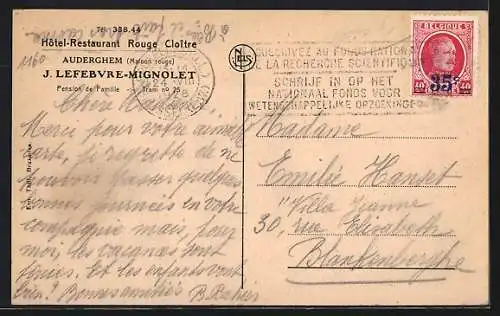 Tél. 338.44
Hôtel-Restaurant Rouge Cloître
AUDERGHEM (Maison rouge)
J. LEFEBVRE-MIGNOLET
Pension de Famille Tram nº 25
1160
Chère Madame,
Merci pour votre aimable
carte, je regrette de ne
pouvoir passer quelques
bonnes journées en votre
compagnie mais, pour
moi, les vacances sont
finies. Et les enfants vont
bien? Bonnes amitiés B. Rahier
NELS
SOUSCRIVEZ AU FONDS NATIONAL
DE LA RECHERCHE SCIENTIFIQUE
SCHRIJF IN OP HET
NATIONAAL FONDS VOOR
WETENSCHAPPELIJKE OPZOEKINGEN
BELGIQUE
35c
40 40
Madame
Emilie Hanset
"Villa Jeanne"
30, rue Elisabeth
Blankenberghe